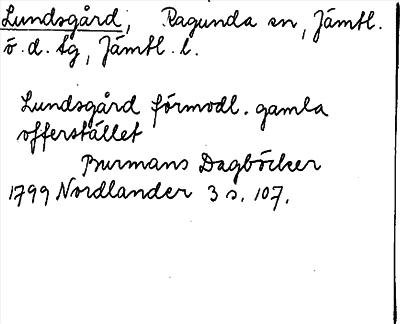 Lundsgård, Ragunda sn, Jämtl.
ö. d. tg, Jämtl. l.
Lundsgård förmodl. gamla
offerstället
Burmans Dagböcker
1799 Nordlander 3 s. 107.